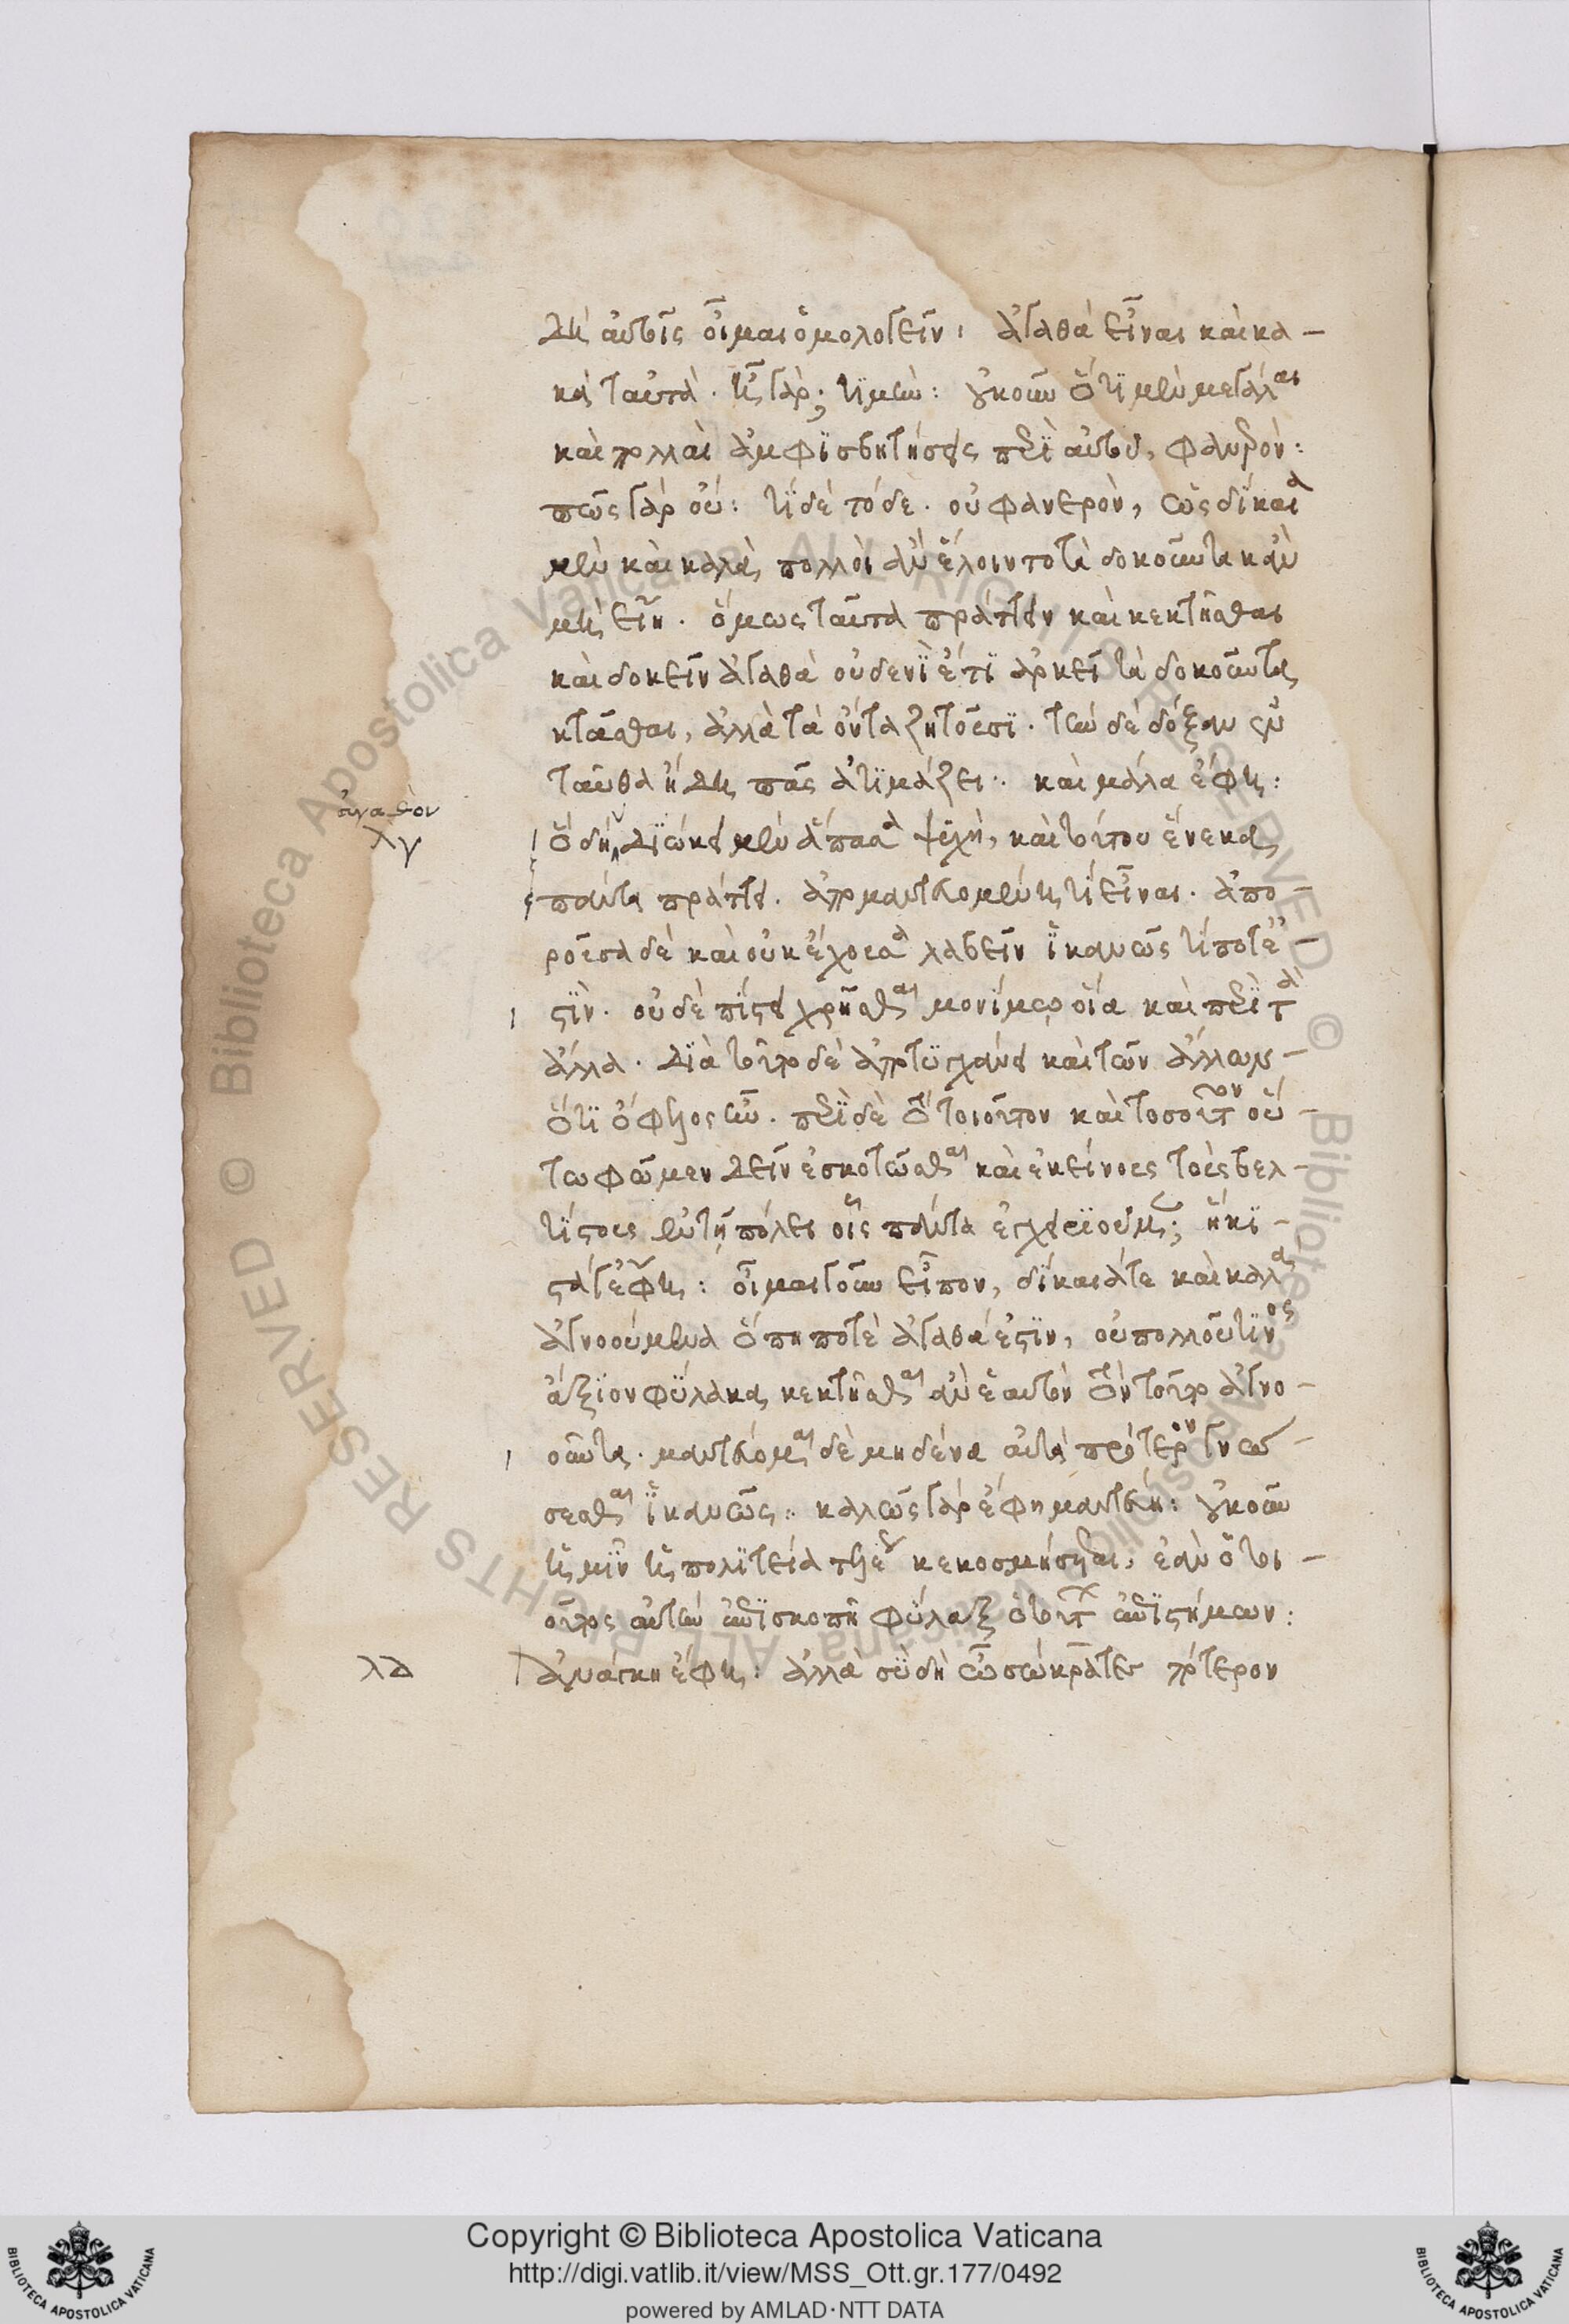 δὴ αὐτοῖς οἶμαι ὁμολογεῖν, ἀγαθὰ εἶναι καὶ κα–
κὰ ταὐτά. ἦ γάρ; τί μήν: οὐκοῦν ὅτι μὲν μεγάλαι
καὶ πολλαὶ ἀμφισβητήσεις περὶ αὐτοῦ, φανερόν:
πῶς γὰρ οὔ: τί δὲ τόδε. οὐ φανερὸν, ὡς δίκαια
μὲν καὶ καλὰ πολλοὶ ἂν ἕλοιντο τὰ δοκοῦντα κἂν
μὴ εἴη. ὅμως ταῦτα πράττειν καὶ κεκτῆσθαι
καὶ δοκεῖν ἀγαθὰ οὐδενὶ ἔτι ἀρκεῖ τὰ δοκοῦντα
κτᾶσθαι, ἀλλὰ τὰ ὄντα ζητοῦσι. τὴν δὲ δόξαν ἐν
ταῦθα ἤδη πᾶς ἀτιμάζει: καὶ μάλα ἔφη:
ἀγαθὸν
λγ
ὃ δὴ διώκει μὲν ἅπασα ψυχὴ, καὶ τούτου ἕνεκα
πάντα πράττει. ἀπομαντευομένη τὶ εἶναι. ἀπο–
ροῦσα δὲ καὶ οὐκ ἔχουσα λαβεῖν ἱκανῶς τί ποτέ ἐ–
στὶν. οὐδὲ πίστει χρήσασθαι μονίμῳ οἵα καὶ περὶ τὰ
ἄλλα. διὰ τοῦτο δὲ ἀποτυγχάνει καὶ τῶν ἄλλων –
ὅτι ὄφελος ἦν. περὶ δὲ τὸ τοιοῦτον καὶ τοσοῦτον οὕ–
τω φῶμεν δεῖν ἐσκοτῶσθαι καὶ ἐκείνους τοὺς βελ–
τίστους ἐν τῇ πόλει οἷς πάντα ἐγχειριοῦμεν; ἥκι–
στά γ' ἔφη: οἶμαι γοῦν εἶπον, δίκαιά τε καὶ καλὰ
ἀγνοούμενα ὅπη ποτὲ ἀγαθά ἐστιν, οὐ πολλοῦ τινὸς
ἄξιον φύλακα κεκτῆσθαι ἂν ἑαυτῶν τὸν τοῦτο ἀγνο–
οῦντα. μαντεύομαι δὲ μηδένα αὐτὰ πρότερον γνώ–
σεσθαι ἱκανῶς: καλῶς γὰρ ἔφη μαντεύῃ: οὐκοῦν
ἡμῖν ἡ πολιτεία τελέως κεκοσμήσεται, ἐὰν ὁ τοι–
οῦτος αὐτὴν ἐπισκοπῇ φύλαξ ὁ τούτων ἐπιστήμων:
λδ
ἀνάγκη ἔφη: ἀλλὰ σὺ δὴ ὦ σώκρατες πότερον
Copyright © Biblioteca Apostolica Vaticana
http://digi.vatlib.it/view/MSS_Ott.gr.177/0492
powered by AMLAD·NTT DATA